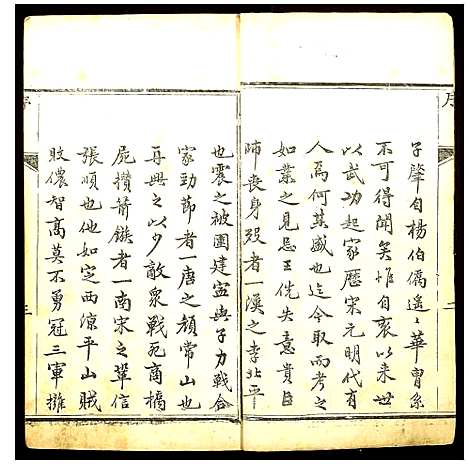 子肇自楊伯僑遥遥華胄系
不可得聞矣惟自袁以来世
以武功起家歷宋元明代有
人焉何其盛也迄今取而考之
如業之見忌王侁失意貴臣
師喪身殁者一漢之李北平
也震之被圍建寧與子力戰合
家勁節者一唐之顏常山也
再興之以少敵衆戰死商橋
屍攢箭鏃者一南宋之鞏信
張順也他如定西凉平山賊
敗儂智高莫不勇冠三軍擁
序
二
序
三